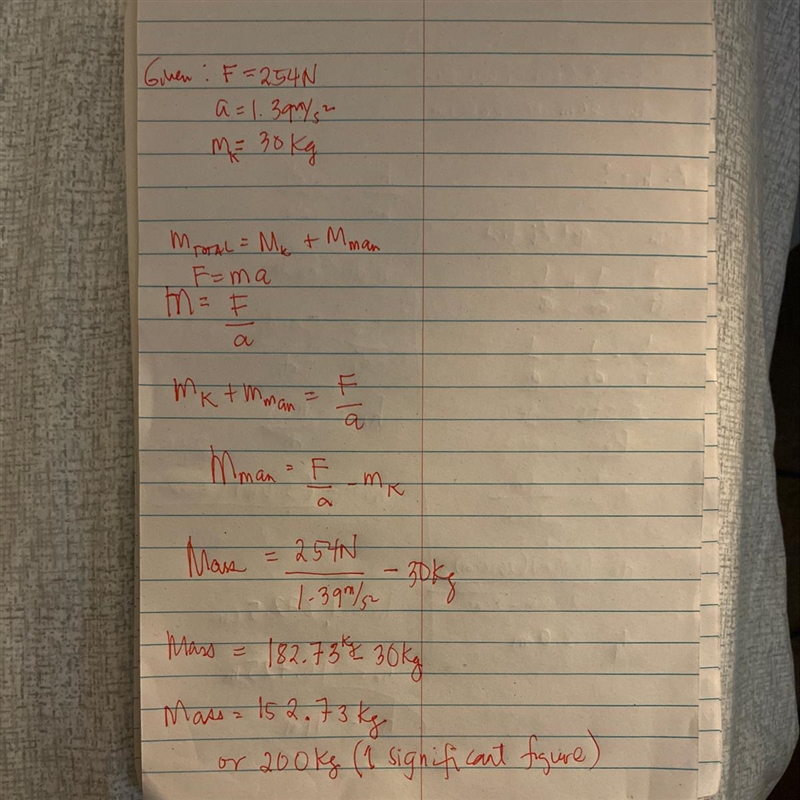 Given: F = 254N
a = 1.39m/s²
mK = 30 Kg
mTOTAL = MK + Mman
F = ma
m = F/a
mK + mman = F/a
Mman = F/a - mK
Mass = 254N/1.39m/s² - 30Kg
Mass = 182.73kg - 30Kg
Mass = 152.73 Kg
or 200Kg (1 significant figure)